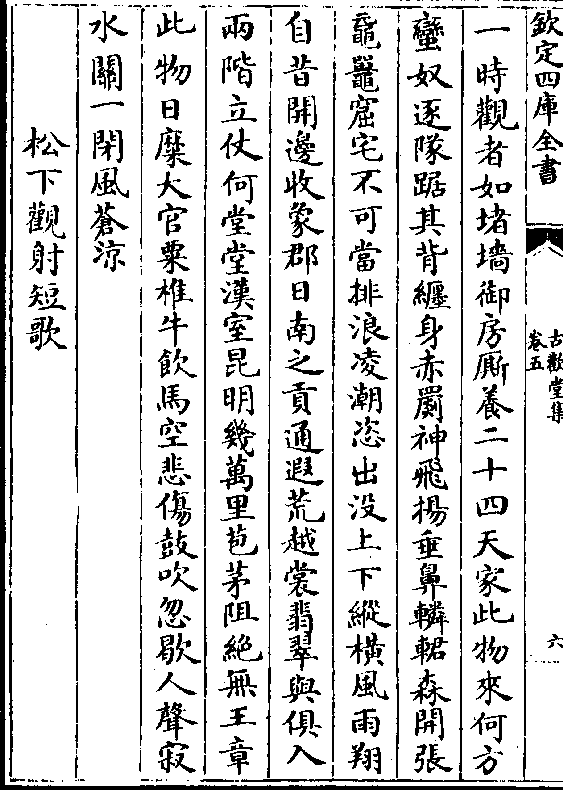 欽定四庫全書
古歡堂集
卷五
六
一時觀者如堵墻御房厮養二十四天家此物來何方
蠻奴逐隊踞其背纒身赤罽神飛揚垂鼻轔輑森開張
黿鼉窟宅不可當排浪凌潮恣出没上下縱横風雨翔
自昔開邊收象郡日南之貢通遐荒越裳翡翠與俱入
兩階立仗何堂堂漢室昆明幾萬里苞茅阻絶無王章
此物日糜大官粟椎牛飲馬空悲傷鼓吹忽歇人聲寂
水關一閉風蒼涼
松下觀射短歌